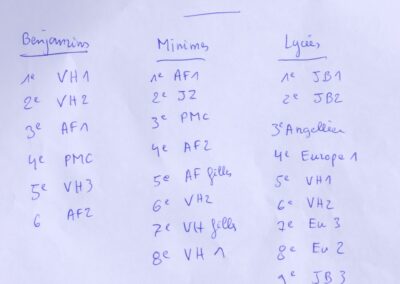 Benjamins
1e VH1
2e VH2
3e AF1
4e PMC
5e VH3
6 AF2
Minimes
1e AF1
2e J2
3e PMC
4e AF2
5e AF filles
6e VH2
7e VH filles
8e VH 1
Lycées
1e JB1
2e JB2
3e Angellier
4e Europe 1
5e VH1
6e VH2
7e Eu 3
8e Eu 2
9e JB 3